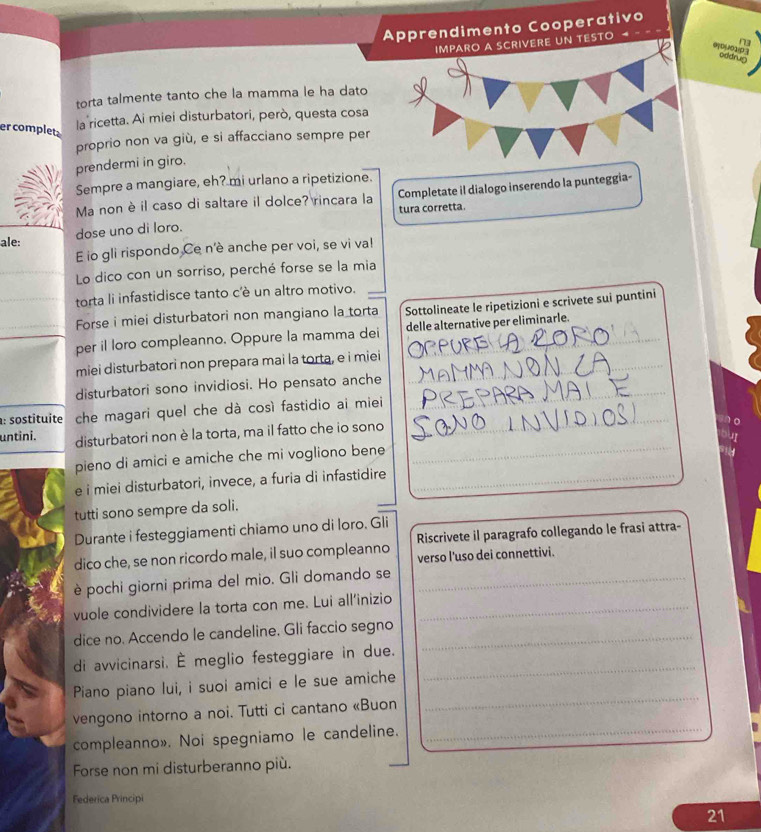 Apprendimento Cooperativo
IMPARO A SCRIVERE UN TESTO
Gruppo
Editoriale
ELi
torta talmente tanto che la mamma le ha dato
la ricetta. Ai miei disturbatori, però, questa cosa
proprio non va giù, e si affacciano sempre per
prendermi in giro.
Sempre a mangiare, eh? mi urlano a ripetizione.
Ma non è il caso di saltare il dolce? rincara la
dose uno di loro.
E io gli rispondo Ce n'è anche per voi, se vi va!
Lo dico con un sorriso, perché forse se la mia
torta li infastidisce tanto c'è un altro motivo.
Forse i miei disturbatori non mangiano la torta
per il loro compleanno. Oppure la mamma dei
miei disturbatori non prepara mai la torta, e i miei
disturbatori sono invidiosi. Ho pensato anche
che magari quel che dà così fastidio ai miei
disturbatori non è la torta, ma il fatto che io sono
pieno di amici e amiche che mi vogliono bene
e i miei disturbatori, invece, a furia di infastidire
tutti sono sempre da soli.
Durante i festeggiamenti chiamo uno di loro. Gli
dico che, se non ricordo male, il suo compleanno
è pochi giorni prima del mio. Gli domando se
vuole condividere la torta con me. Lui all'inizio
dice no. Accendo le candeline. Gli faccio segno
di avvicinarsi. È meglio festeggiare in due.
Piano piano lui, i suoi amici e le sue amiche
vengono intorno a noi. Tutti ci cantano «Buon
compleanno». Noi spegniamo le candeline.
Forse non mi disturberanno più.
Federica Principi
Completate il dialogo inserendo la punteggia-
tura corretta.
Sottolineate le ripetizioni e scrivete sui puntini
delle alternative per eliminarle.
OPPURE LA LORO
MAMMA NON LA
PREPARA MAI E
SONO INVIDIOSI
Riscrivete il paragrafo collegando le frasi attra-
verso l'uso dei connettivi.
er completa
ale:
a: sostituite
untini.
21